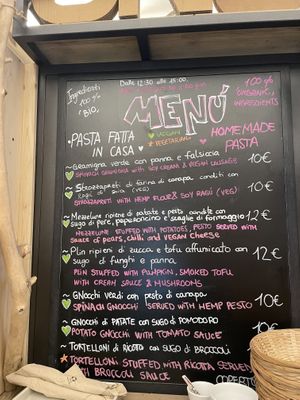 Ingredienti
100%
BIO
Dalle 12:30 alle 15:00
MENÚ
100%
ORGANIC
INGREDIENTS
♥ VEGAN
★ VEGETARIAN
• PASTA FATTA
IN CASA •
HOMEMADE
PASTA
Gramigna verde con panna e salsiccia
SPINACH GRAMIGNA with SOY CREAM & VEGAN SAUSAGE
10€
Strozzapreti di farina di canapa conditi con
ragù di soia (veg)
STROZZAPRETI with HEMP FLOUR & SOY RAGÙ (VEG)
10€
Mezzelune ripiene di patate e pesto condite con
sugo di pere, peperoncino e scaglie di formaggio
12€
MEZZELUNE STUFFED WITH POTATOES, PESTO SERVED WITH
SAUCE of PEARS, CHILLI and VEGAN CHEESE
Plin ripieni di zucca e tofu affumicato con
sugo di funghi e panna
12€
PLIN STUFFED with PUMPKIN, SMOKED TOFU
WITH CREAM SAUCE & MUSHROOMS
GNOCCHI verdi con pesto di canapa
10€
SPINACH GNOCCHI SERVED WITH HEMP PESTO
GNOCCHI di PATATE CON SUGO di POMODORO
10€
POTATO GNOCCHI WITH TOMATO SAUCE
• TORTELLONI di RICOTTA con SUGO di BROCCOLI
TORTELLONI STUFFED WITH RICOTTA, SERVED
WITH BROCCOLI SAUCE
COPERTO